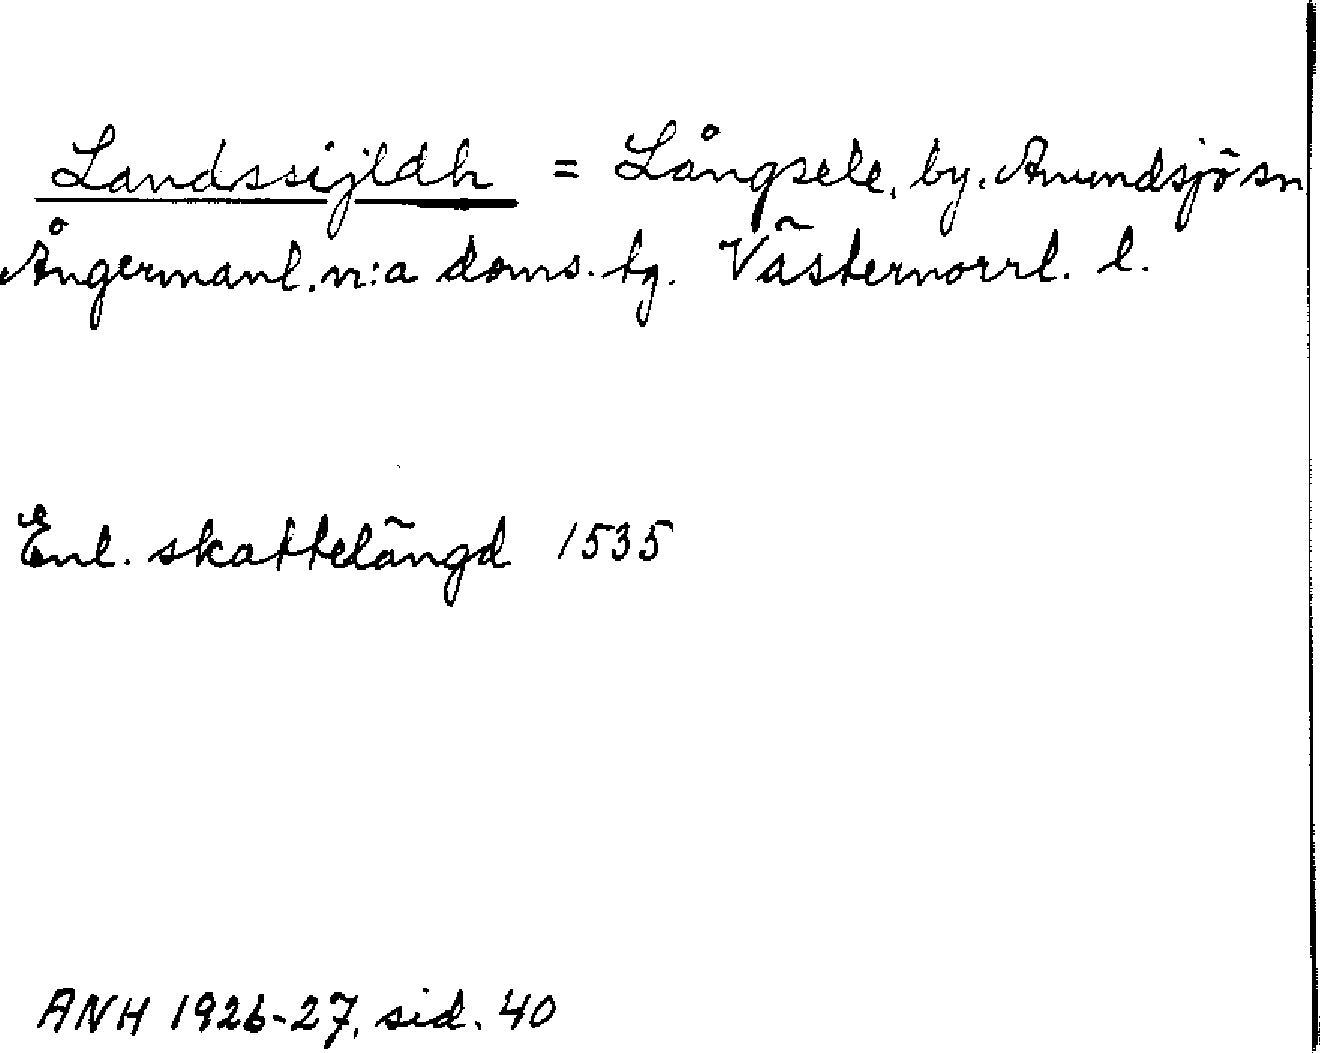 Landssijldh = Långsele, by. Anundsjö sn
Ångermanl. n:a doms. tg. Västernorrl. l.
Enl. skattelängd 1535
ANH 1926-27, sid. 40